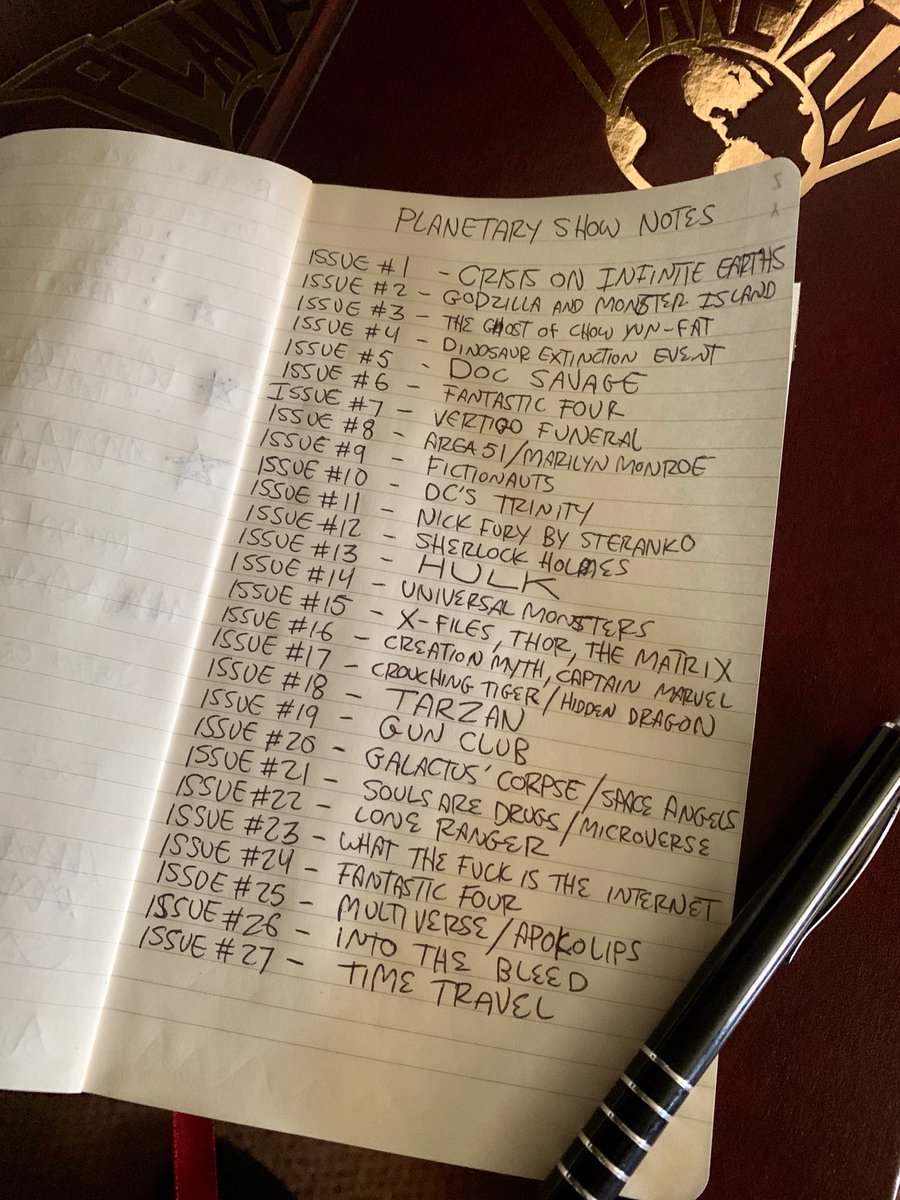 PLANETARY SHOW NOTES
ISSUE #1 - CRISIS ON INFINITE EARTHS
ISSUE #2 - GODZILLA AND MONSTER ISLAND
ISSUE #3 - THE GHOST OF CHOW YUN-FAT
ISSUE #4 - DINOSAUR EXTINCTION EVENT
ISSUE #5 - DOC SAVAGE
ISSUE #6 - FANTASTIC FOUR
ISSUE #7 - VERTIGO FUNERAL
ISSUE #8 - AREA 51/MARILYN MONROE
ISSUE #9 - FICTIONAUTS
ISSUE #10 - DC'S TRINITY
ISSUE #11 - NICK FURY BY STERANKO
ISSUE #12 - SHERLOCK HOLMES
ISSUE #13 - HULK
ISSUE #14 - UNIVERSAL MONSTERS
ISSUE #15 - X-FILES, THOR, THE MATRIX
ISSUE #16 - CREATION MYTH, CAPTAIN MARVEL
ISSUE #17 - CROUCHING TIGER/HIDDEN DRAGON
ISSUE #18 - TARZAN
ISSUE #19 - GUN CLUB
ISSUE #20 - GALACTUS' CORPSE/SPACE ANGELS
ISSUE #21 - SOULS ARE DRUGS/MICROVERSE
ISSUE #22 - LONE RANGER
ISSUE #23 - WHAT THE FUCK IS THE INTERNET
ISSUE #24 - FANTASTIC FOUR
ISSUE #25 - MULTIVERSE/APOKOLIPS
ISSUE #26 - INTO THE BLEED
ISSUE #27 - TIME TRAVEL